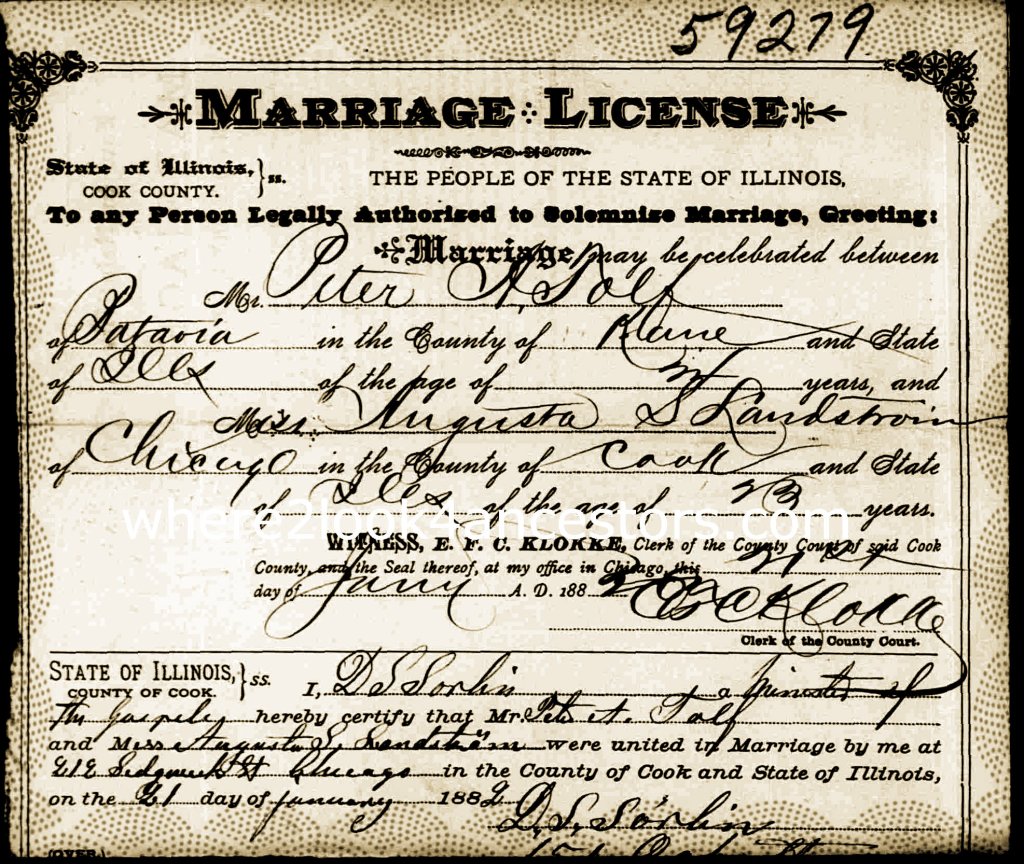 59279
MARRIAGE LICENSE
State of Illinois, } ss.
COOK COUNTY.
THE PEOPLE OF THE STATE OF ILLINOIS,
To any Person Legally Authorized to Solemnize Marriage, Greeting:
Marriage may be celebrated between
Mr. Peter A. Tolf
of Batavia in the County of Kane and State
of Ills of the age of years, and
Miss Augusta S Landstrom
of Chicago in the County of Cook and State
of Ills of the age of 23 years.
where2look4ancestors.com
WITNESS, E. F. C. KLOKKE, Clerk of the County Court of said Cook
County, and the Seal thereof, at my office in Chicago, this 21st
day of Jany A. D. 188
E F C Klokke
Clerk of the County Court.
STATE OF ILLINOIS, } ss.
COUNTY OF COOK.
I, D S Sorlin a Minister of
the Gospel hereby certify that Mr. Peter A. Tolf
and Miss Augusta S. Landström were united in Marriage by me at
212 Sedgwick St Chicago in the County of Cook and State of Illinois,
on the 21 day of January 1882
D. S. Sörlin
(OVER)